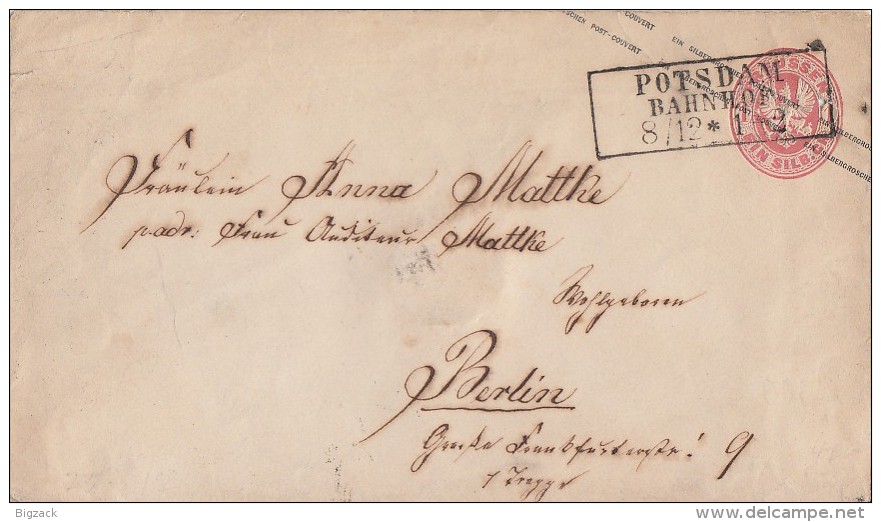 EIN SILBERGROSCHEN POST-COUVERT
PREUSSEN
EIN SILB.
POTSDAM
BAHNHOF
8/12 * 1 2
Fräulein Anna Mattke
p. adr: Frau Auditeur Mattke
Wohlgeboren
Berlin
Große Frankfurterstr: 9
1 Treppe
Bigzack
www.delcampe.net